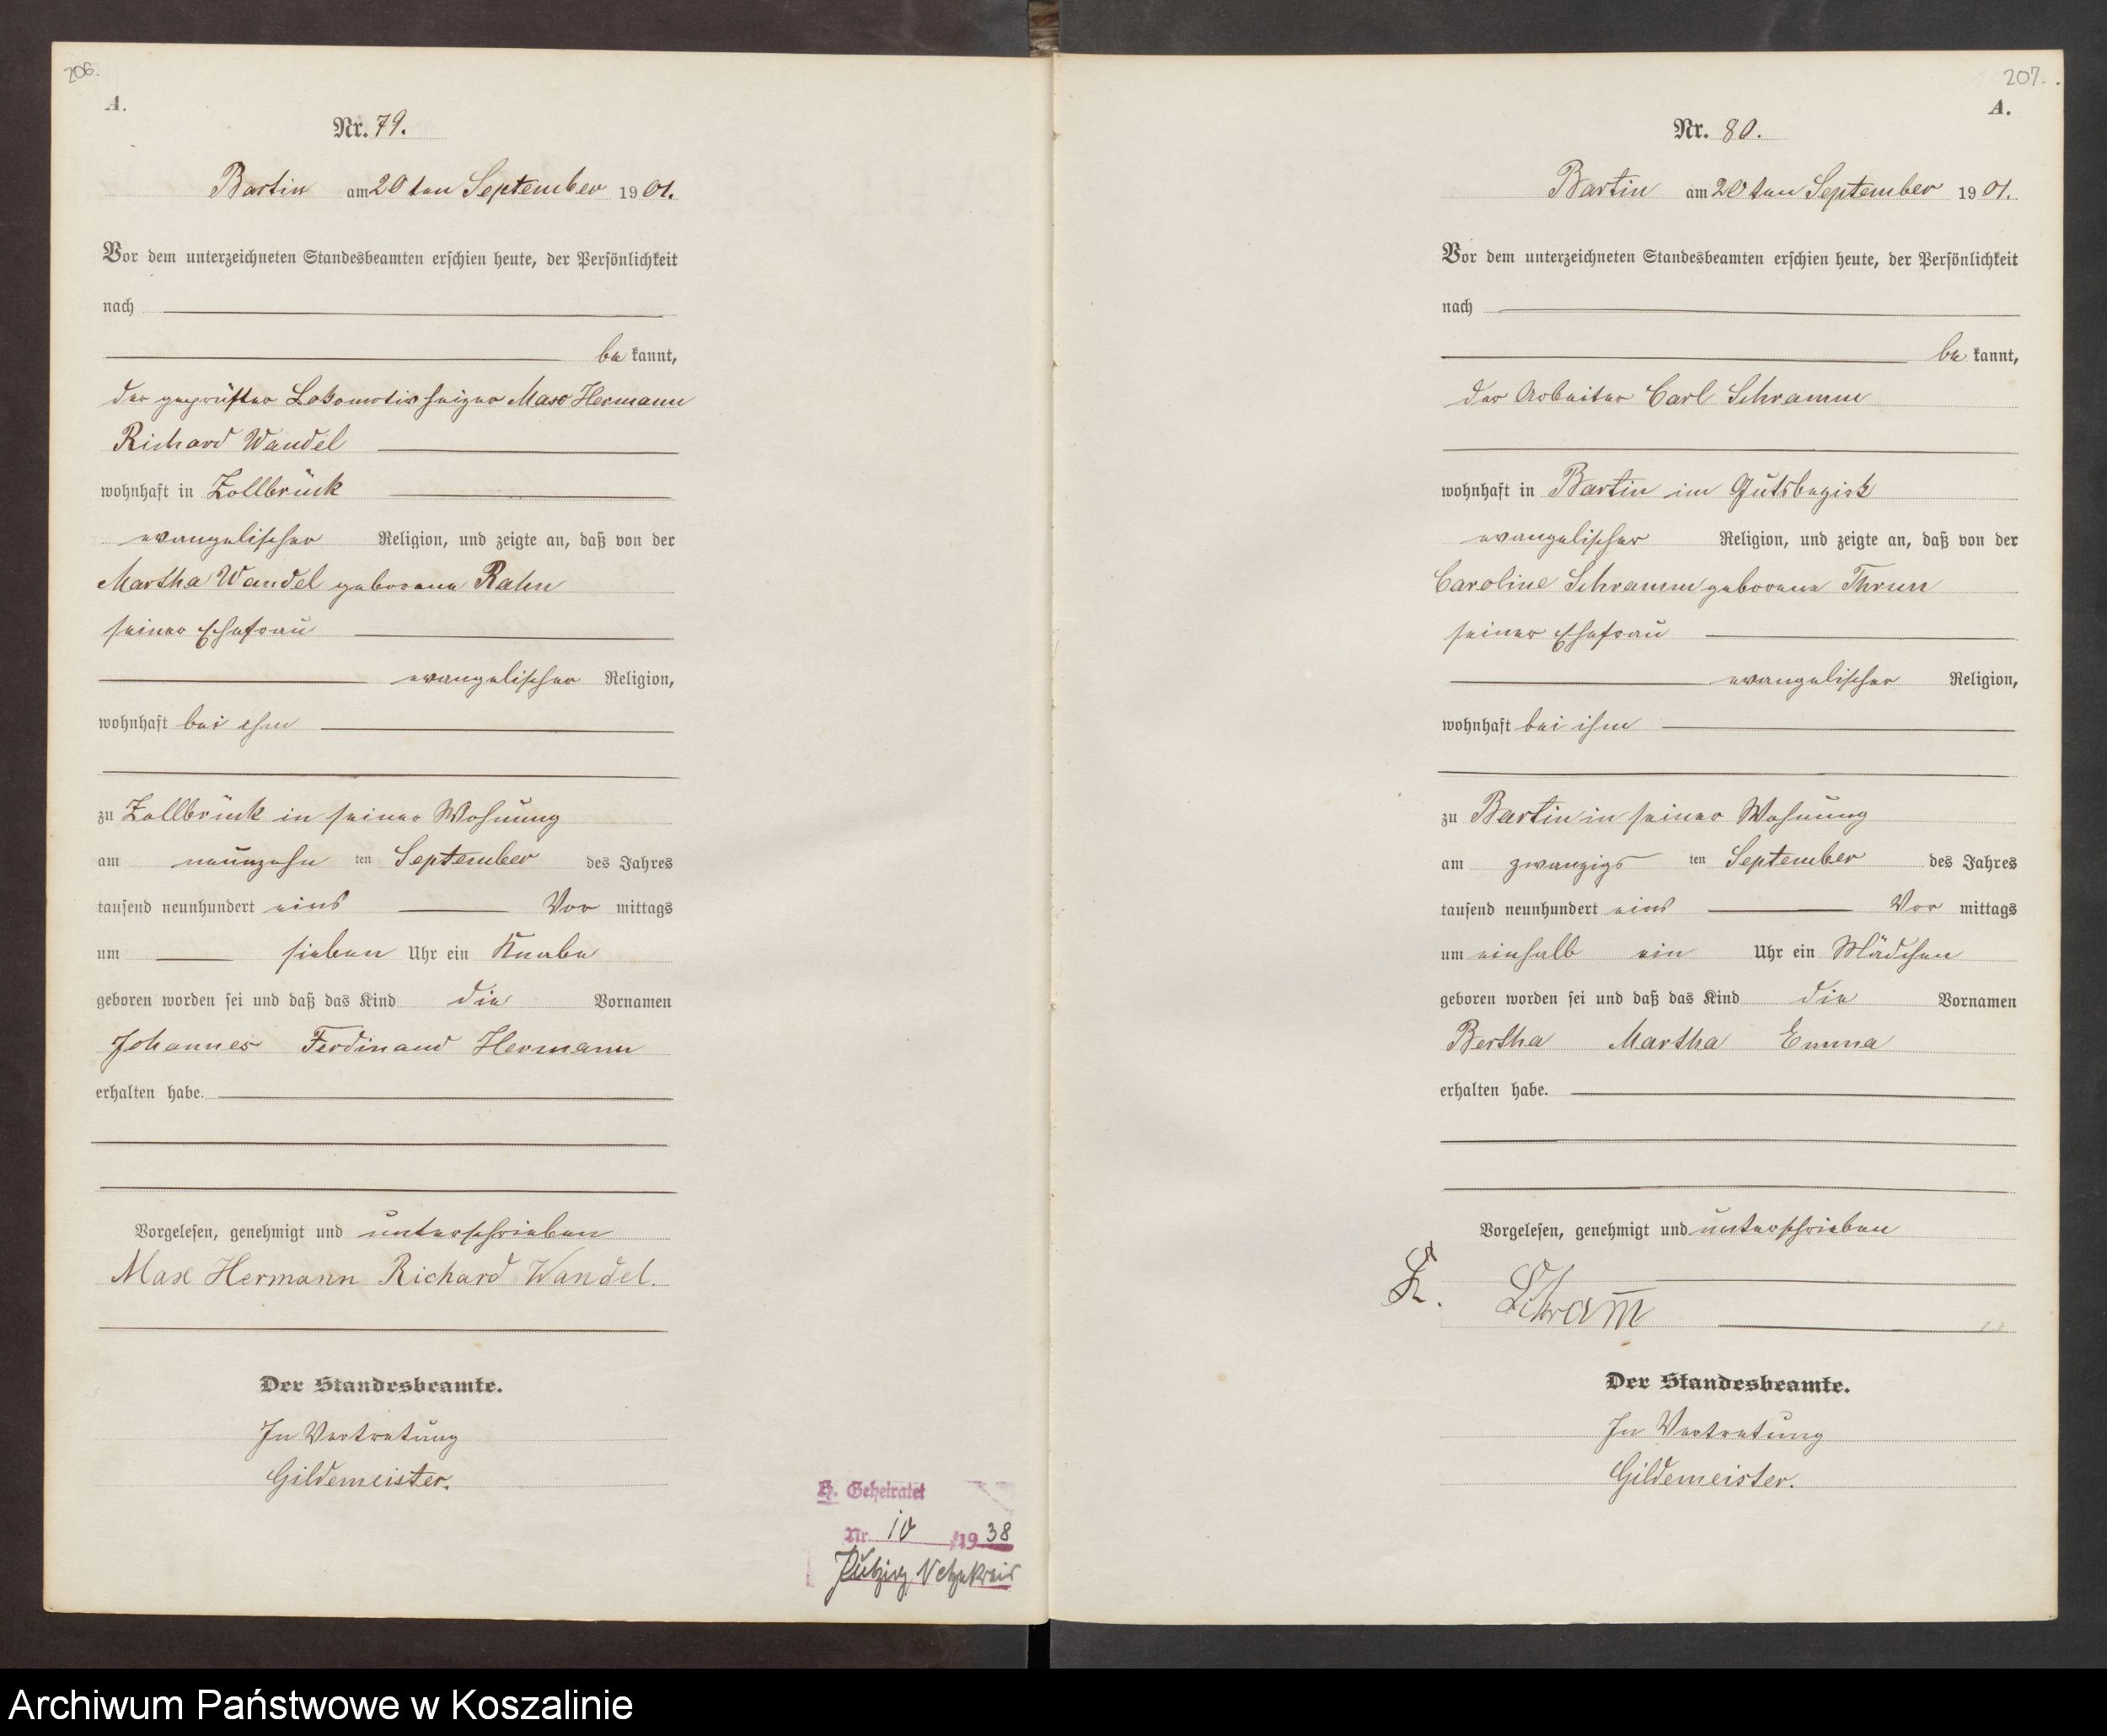 206.
A.
Nr. 79.
Bartin am 20ten September 1901.
Vor dem unterzeichneten Standesbeamten erschien heute, der Persönlichkeit
nach
be kannt,
der geprüfter Lokomotivheizer Max Hermann
Richard Wandel
wohnhaft in Zollbrück
evangelischer Religion, und zeigte an, daß von der
Martha Wandel geborene Rahn
seiner Ehefrau
evangelischer Religion,
wohnhaft bei ihm
zu Zollbrück in seiner Wohnung
am neunzehn ten September des Jahres
tausend neunhundert eins Vor mittags
um sieben Uhr ein Knabe
geboren worden sei und daß das Kind die Vornamen
Johannes Ferdinand Hermann
erhalten habe.
Vorgelesen, genehmigt und unterschrieben
Max Hermann Richard Wandel.
Der Standesbeamte.
In Vertretung
Gildemeister.
H. Geheiratet
Nr. 10 /1938
Netzekreis
207.
A.
Nr. 80.
Bartin am 20ten September 1901.
Vor dem unterzeichneten Standesbeamten erschien heute, der Persönlichkeit
nach
be kannt,
der Arbeiter Carl Schramm
wohnhaft in Bartin im Gutsbezirk
evangelischer Religion, und zeigte an, daß von der
Caroline Schramm geborene Thrun
seiner Ehefrau
evangelischer Religion,
wohnhaft bei ihm
zu Bartin in seiner Wohnung
am zwanzigs ten September des Jahres
tausend neunhundert eins Vor mittags
um einhalb ein Uhr ein Mädchen
geboren worden sei und daß das Kind die Vornamen
Bertha Martha Emma
erhalten habe.
Vorgelesen, genehmigt und unterschrieben
Schram̅
Der Standesbeamte.
In Vertretung
Gildemeister.
Archiwum Państwowe w Koszalinie